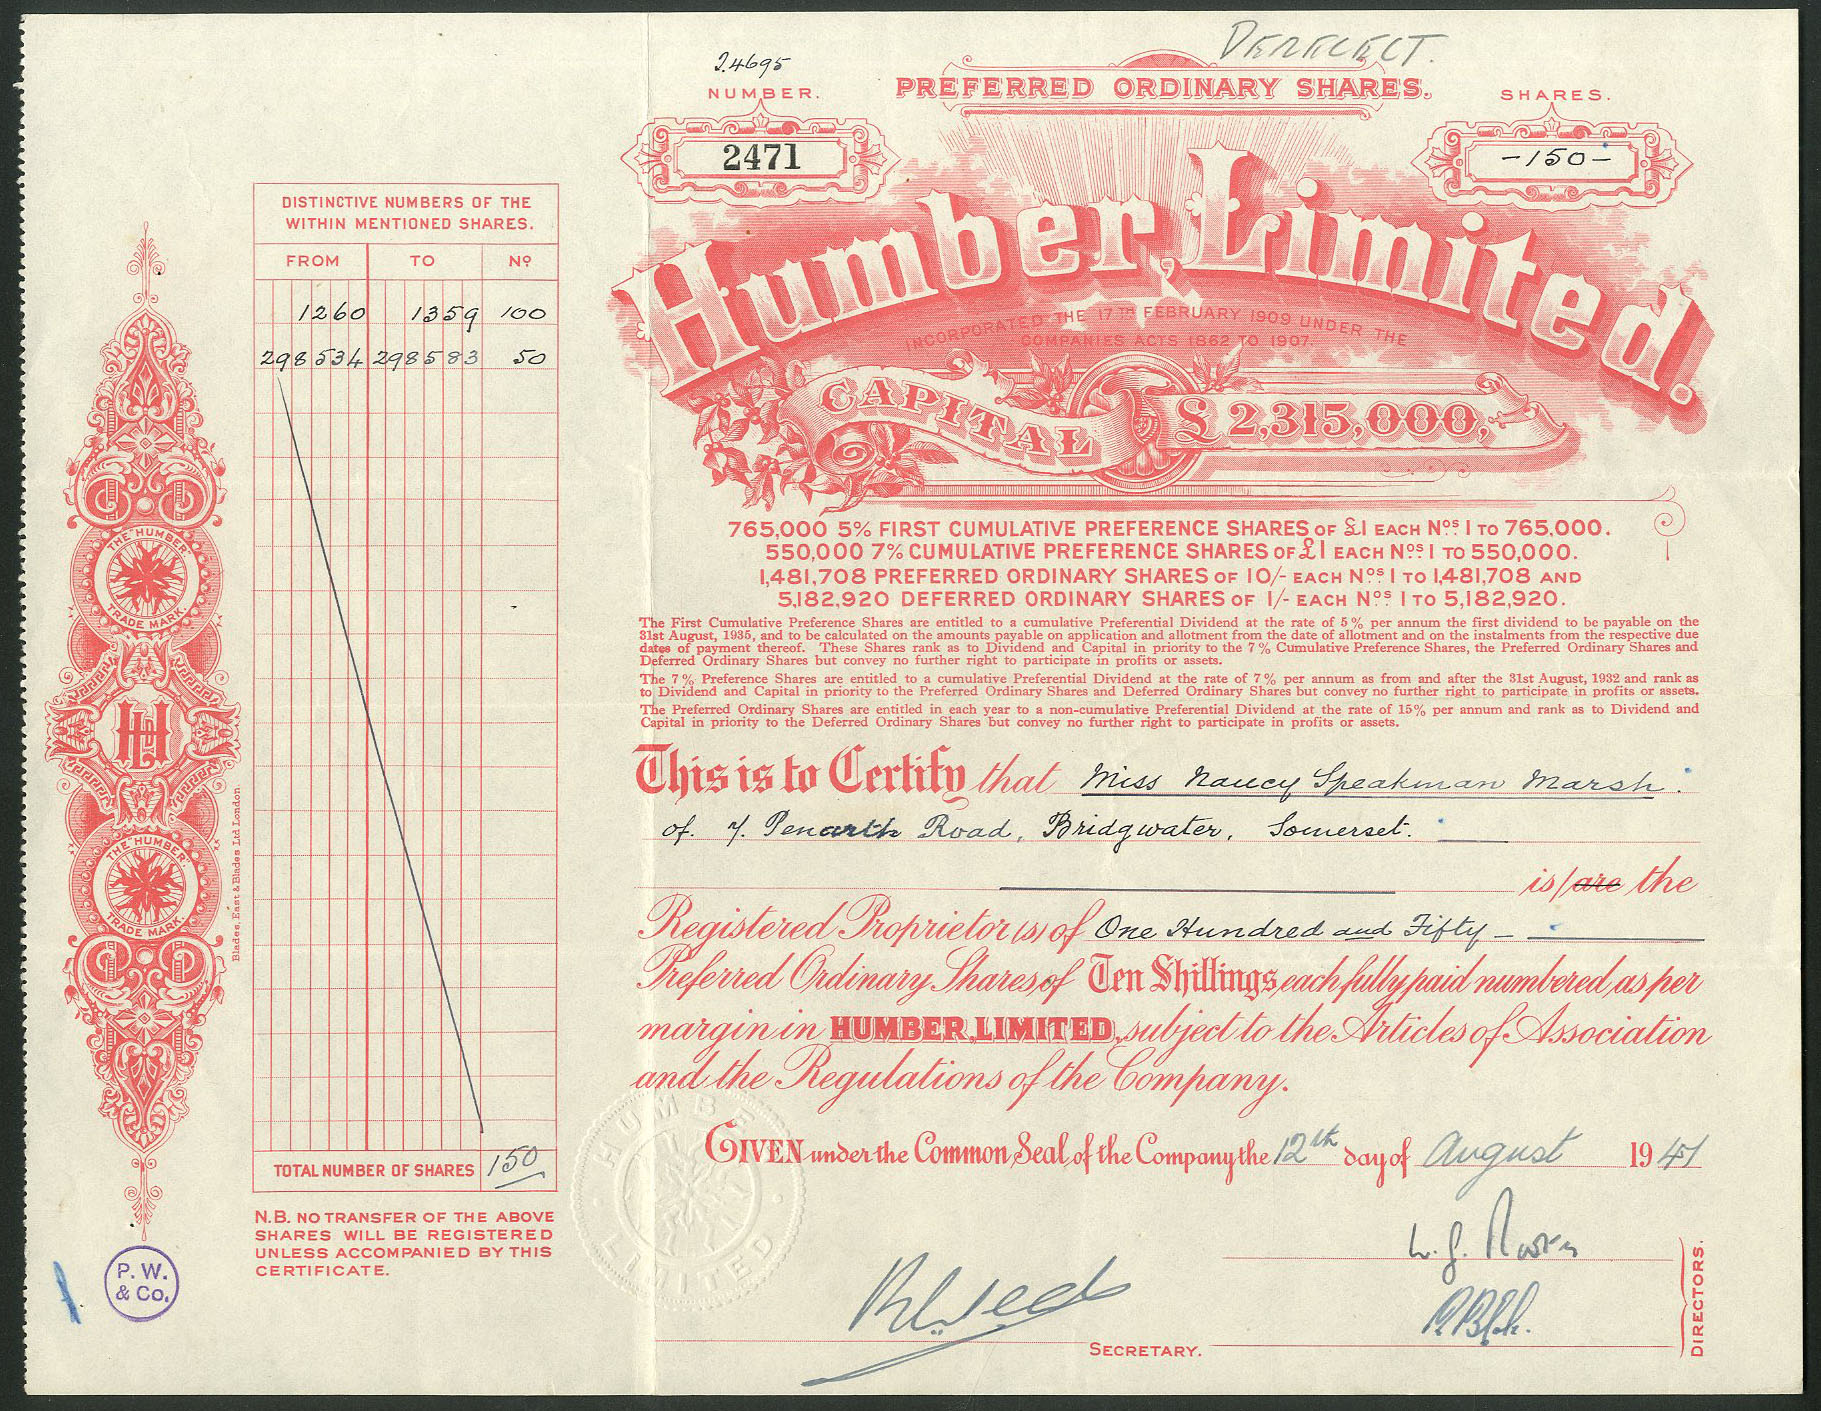 DERELECT.
2.4695
NUMBER.
2471
PREFERRED ORDINARY SHARES.
SHARES.
-150-
Humber, Limited.
INCORPORATED THE 17TH FEBRUARY 1909 UNDER THE
COMPANIES ACTS 1862 TO 1907.
CAPITAL £2,315,000,
765,000 5% FIRST CUMULATIVE PREFERENCE SHARES OF £1 EACH Nos. 1 TO 765,000.
550,000 7% CUMULATIVE PREFERENCE SHARES OF £1 EACH Nos. 1 TO 550,000.
1,481,708 PREFERRED ORDINARY SHARES OF 10/- EACH Nos. 1 TO 1,481,708 AND
5,182,920 DEFERRED ORDINARY SHARES OF 1/- EACH Nos. 1 TO 5,182,920.
The First Cumulative Preference Shares are entitled to a cumulative Preferential Dividend at the rate of 5% per annum the first dividend to be payable on the
31st August, 1935, and to be calculated on the amounts payable on application and allotment from the date of allotment and on the instalments from the respective due
dates of payment thereof. These Shares rank as to Dividend and Capital in priority to the 7% Cumulative Preference Shares, the Preferred Ordinary Shares and
Deferred Ordinary Shares but convey no further right to participate in profits or assets.
The 7% Preference Shares are entitled to a cumulative Preferential Dividend at the rate of 7% per annum as from and after the 31st August, 1932 and rank as
to Dividend and Capital in priority to the Preferred Ordinary Shares and Deferred Ordinary Shares but convey no further right to participate in profits or assets.
The Preferred Ordinary Shares are entitled in each year to a non-cumulative Preferential Dividend at the rate of 15% per annum and rank as to Dividend and
Capital in priority to the Deferred Ordinary Shares but convey no further right to participate in profits or assets.
This is to Certify that Miss Nancy Speakman Marsh.
of. 7. Penarth Road, Bridgwater, Somerset.
is/are the
Registered Proprietor(s) of One Hundred and Fifty -
Preferred Ordinary Shares, of Ten Shillings, each fully paid numbered, as per
margin in HUMBER, LIMITED, subject to the Articles of Association
and the Regulations of the Company.
GIVEN under the Common Seal, of the Company the 12th day of August 1941
DIRECTORS.
SECRETARY.
HUMBER
LIMITED
DISTINCTIVE NUMBERS OF THE
WITHIN MENTIONED SHARES.
FROM TO No
1260 1359 100
298534 298583 50
TOTAL NUMBER OF SHARES 150
N.B. NO TRANSFER OF THE ABOVE
SHARES WILL BE REGISTERED
UNLESS ACCOMPANIED BY THIS
CERTIFICATE.
THE "HUMBER"
TRADE MARK.
H Ld
THE "HUMBER"
TRADE MARK.
Blades, East & Blades Ltd London.
P. W.
& Co.